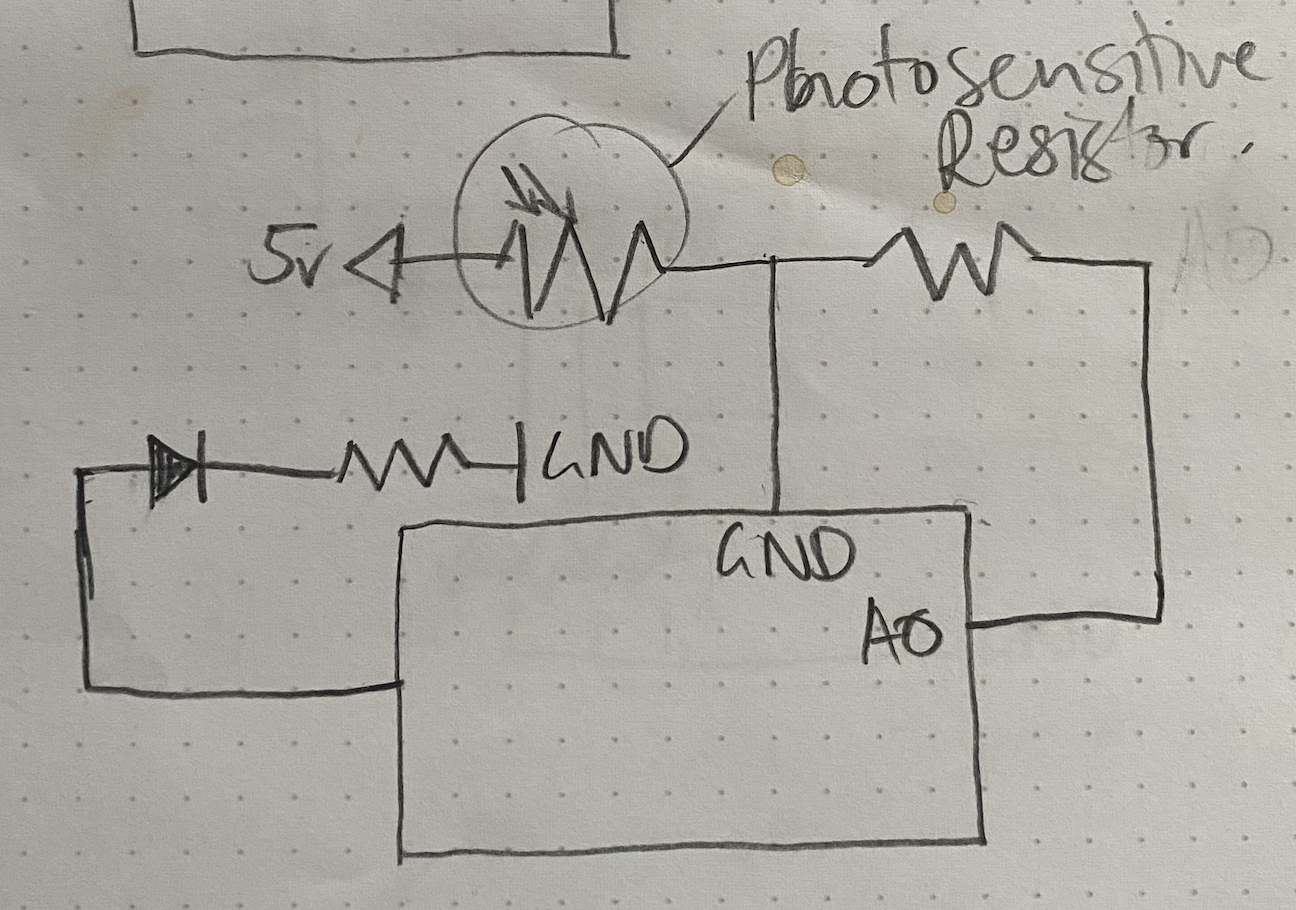 Photosensitive
Resistor.
5v
A0
GND
GND
A0